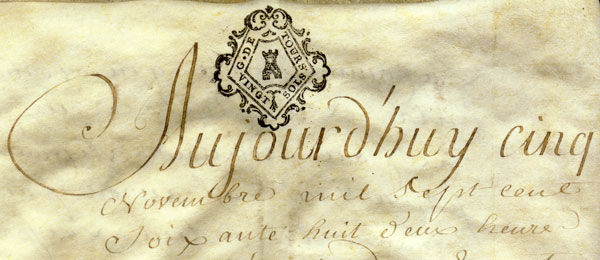 G. DE TOURS
VINGT SOLS
Aujourd'huy cinq
Novembre mil Sept cent
Soixante huit deux heure